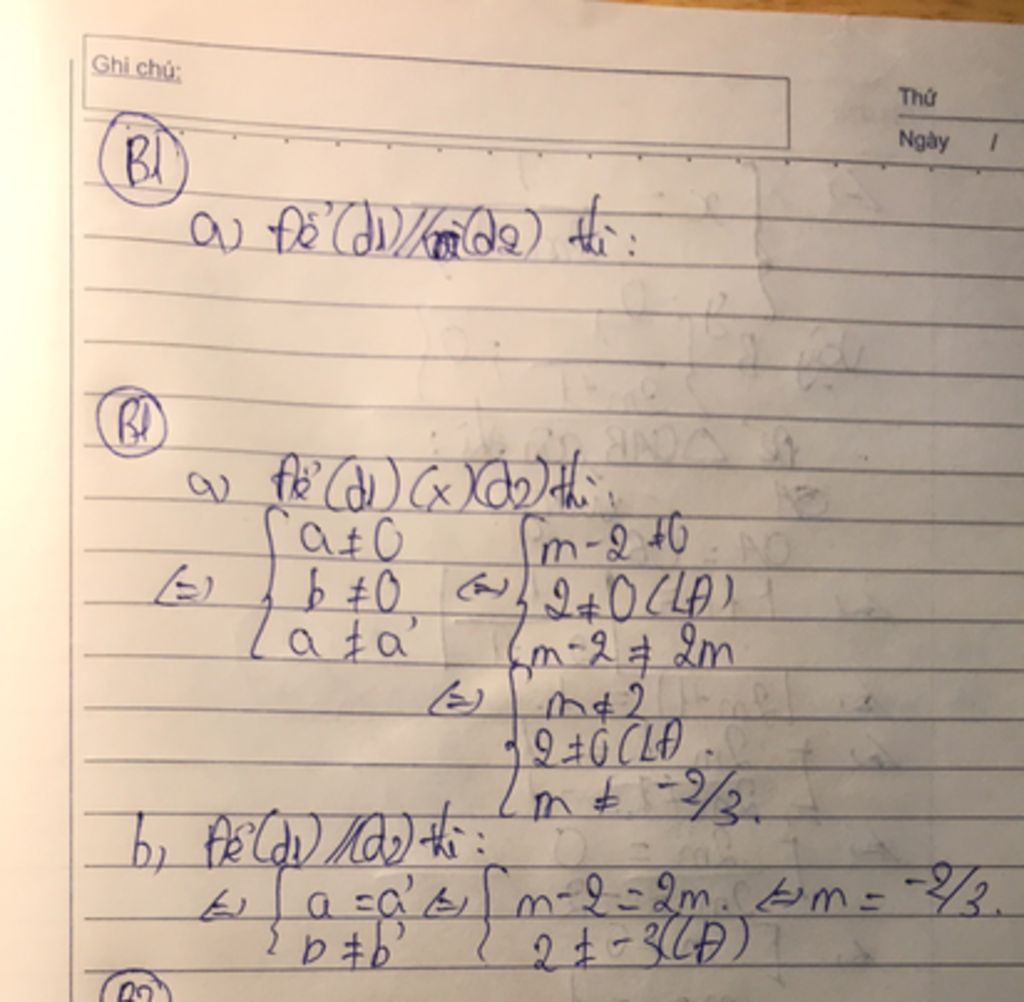 Ghi chú:
Thứ
Ngày /
B1
a) Để (d1) // (d2) thì:
B1
a) Để (d1) (x) (d2) thì:
<=> { a ≠ 0 <=> { m - 2 ≠ 0
b ≠ 0 2 ≠ 0 (LĐ)
a ≠ a' m - 2 ≠ 2m
<=> { m ≠ 2
2 ≠ 0 (LĐ).
m ≠ -2/3.
b, Để (d1) // (d2) thì:
<=> { a = a' <=> { m - 2 = 2m. <=> m = -2/3.
b ≠ b' 2 ≠ -3 (LĐ)
B2